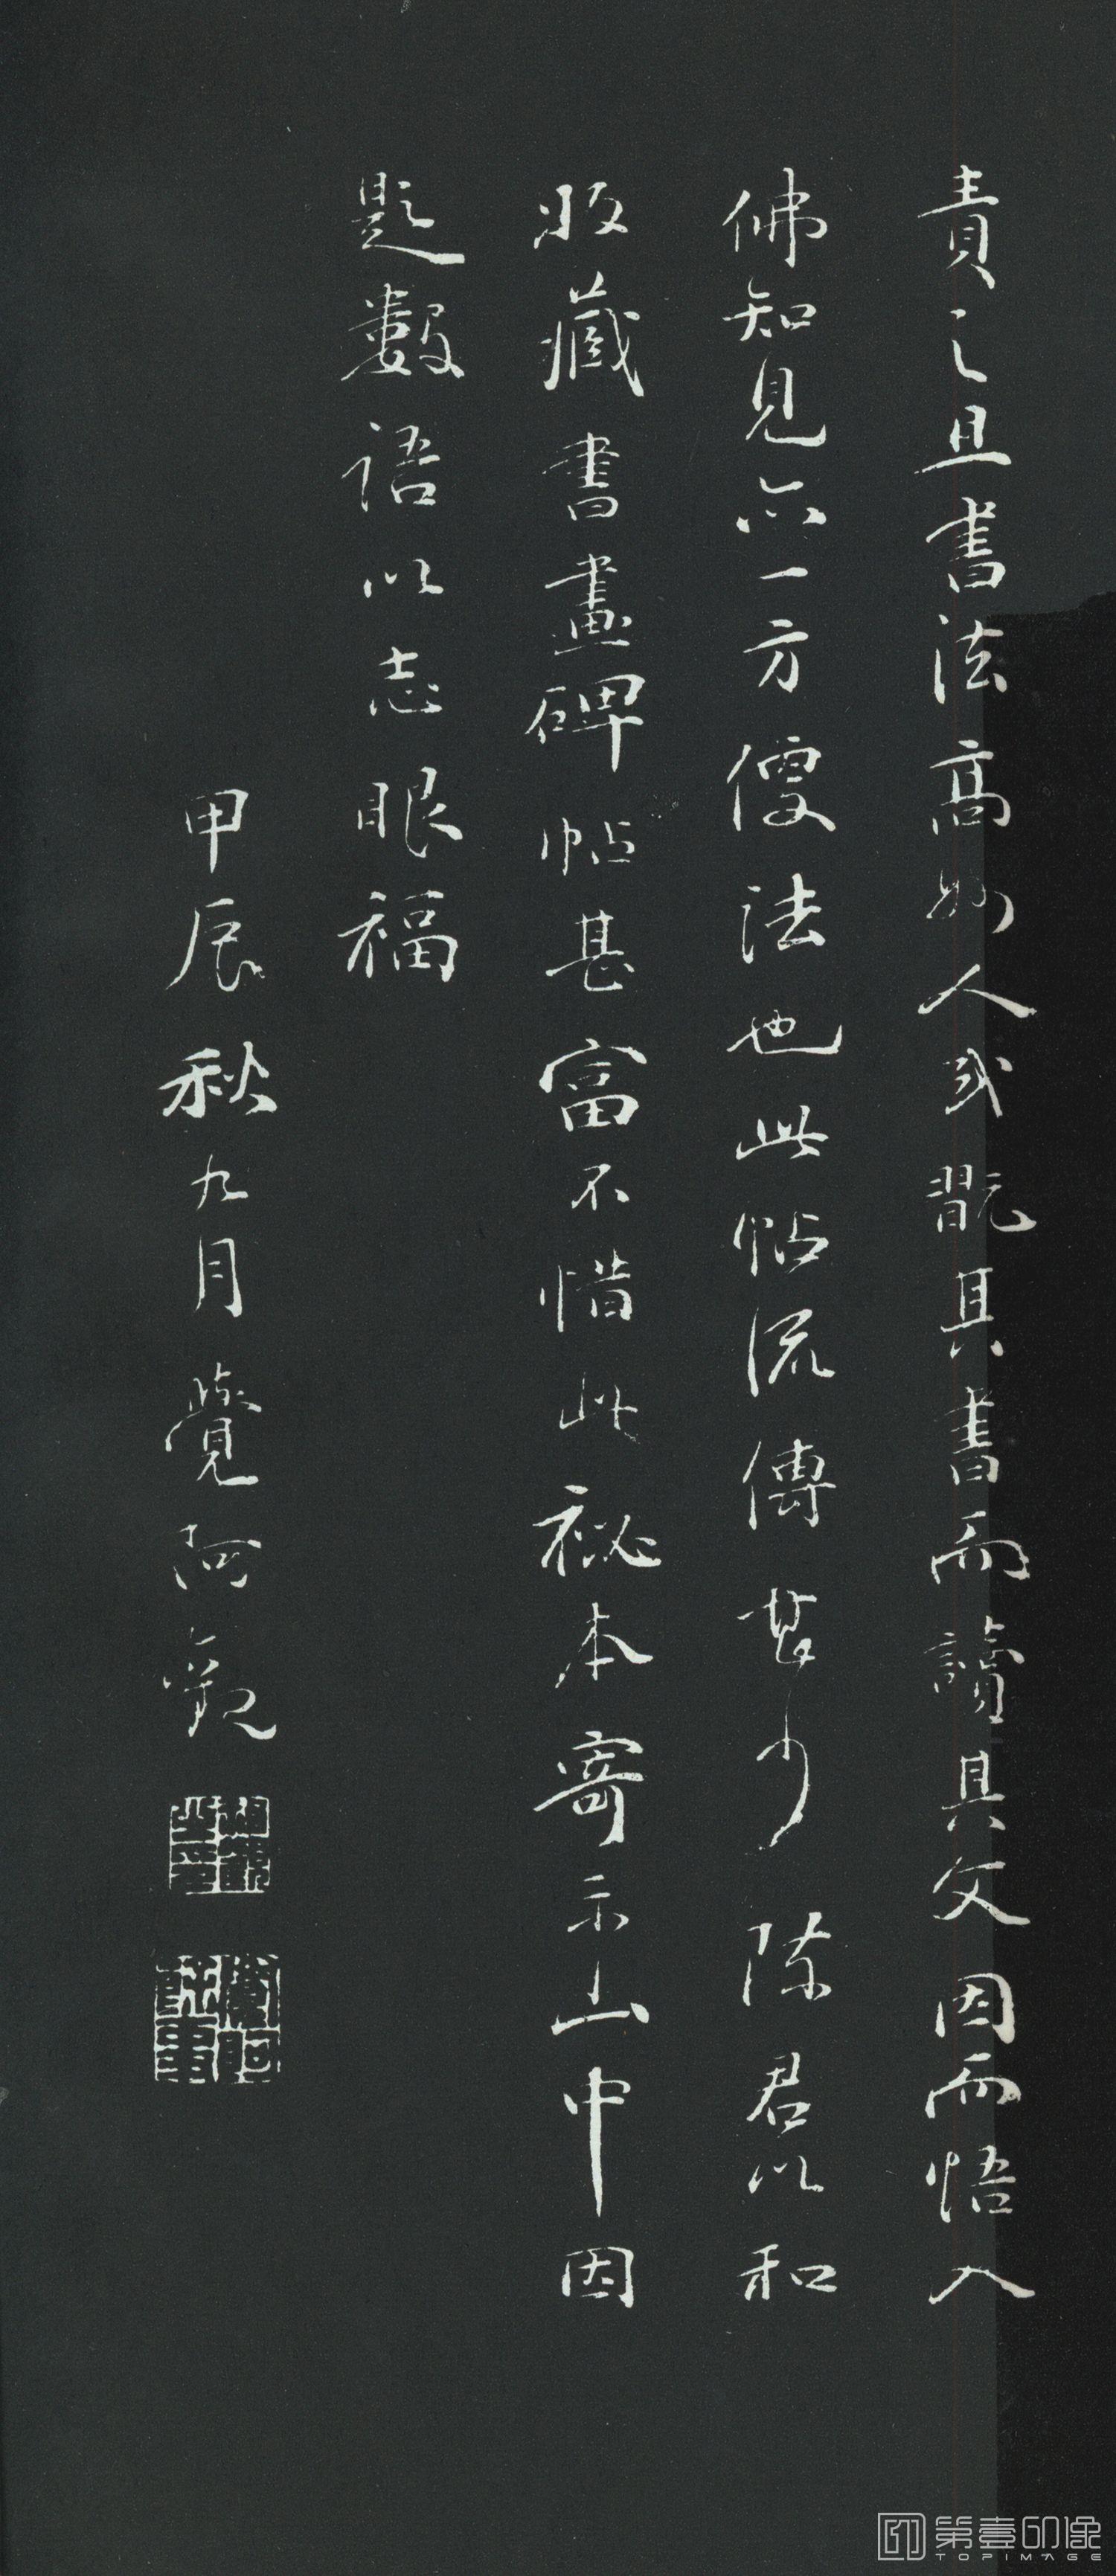 責之且書法高妙人或翫其書而讀其文因而悟入
佛知見亦一方便法也此帖流傳甚少陳君以和
收藏書畫碑帖甚富不惜此祕本寄示山中因
題數語以志眼福
甲辰秋九月覺阿觀
第壹印像
TOPIMAGE